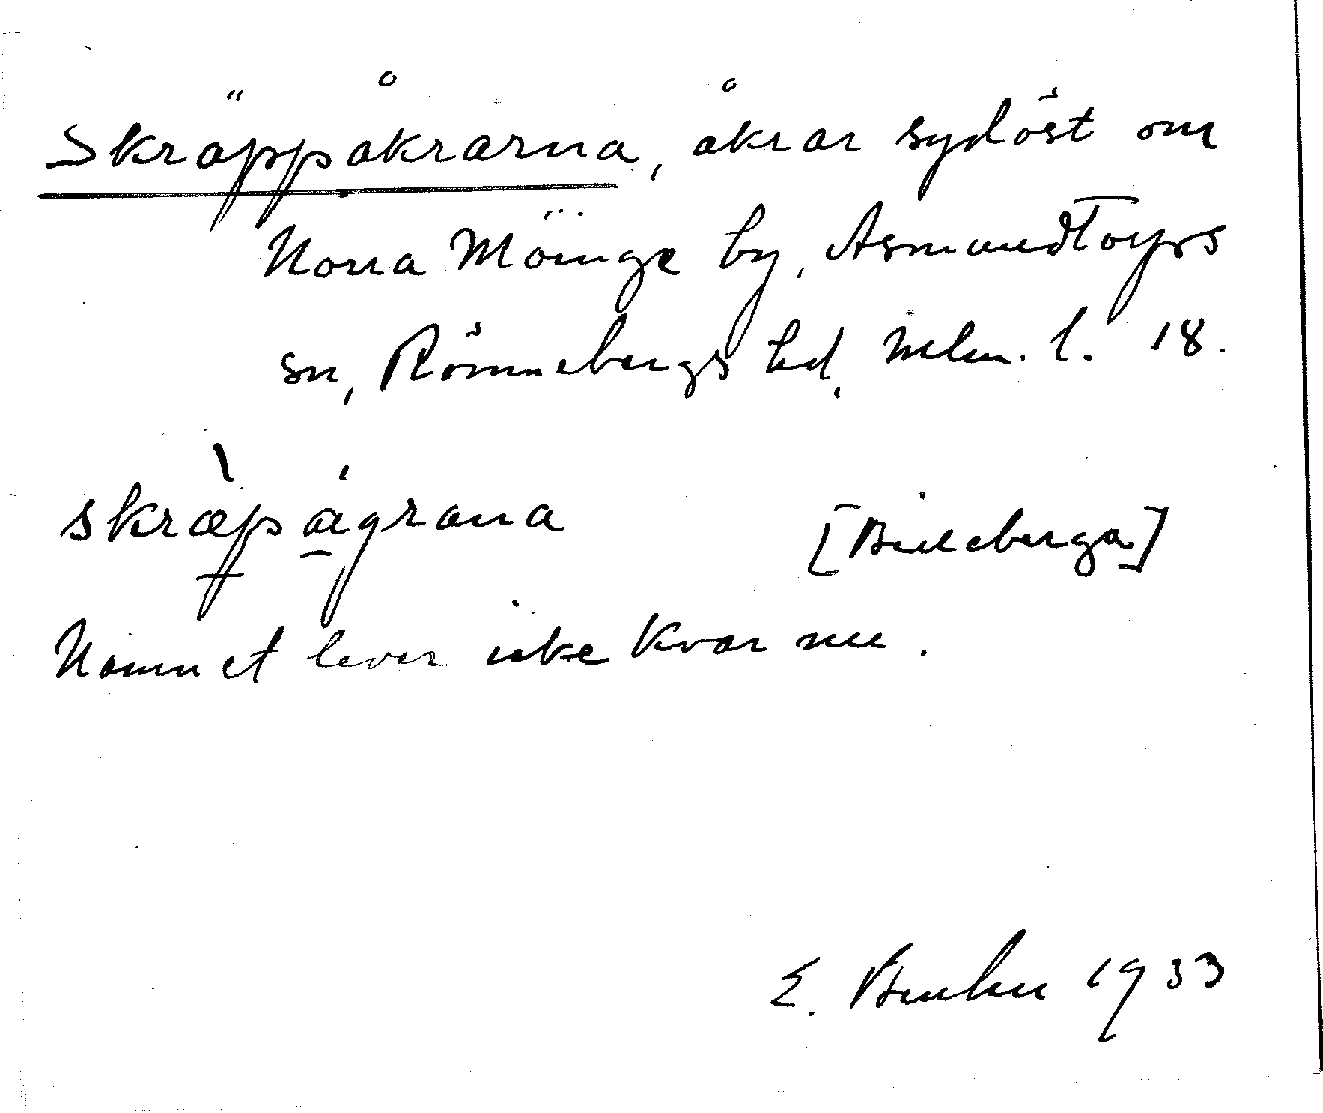 Skräppåkrarna, åkrar sydöst om
Norra Möinge by, Asmundtorps
sn, Rönnebergs hd, Mlm. l. 18.
skræp ágrana [Billeberga]
Namnet lever icke kvar nu.
E. 1933